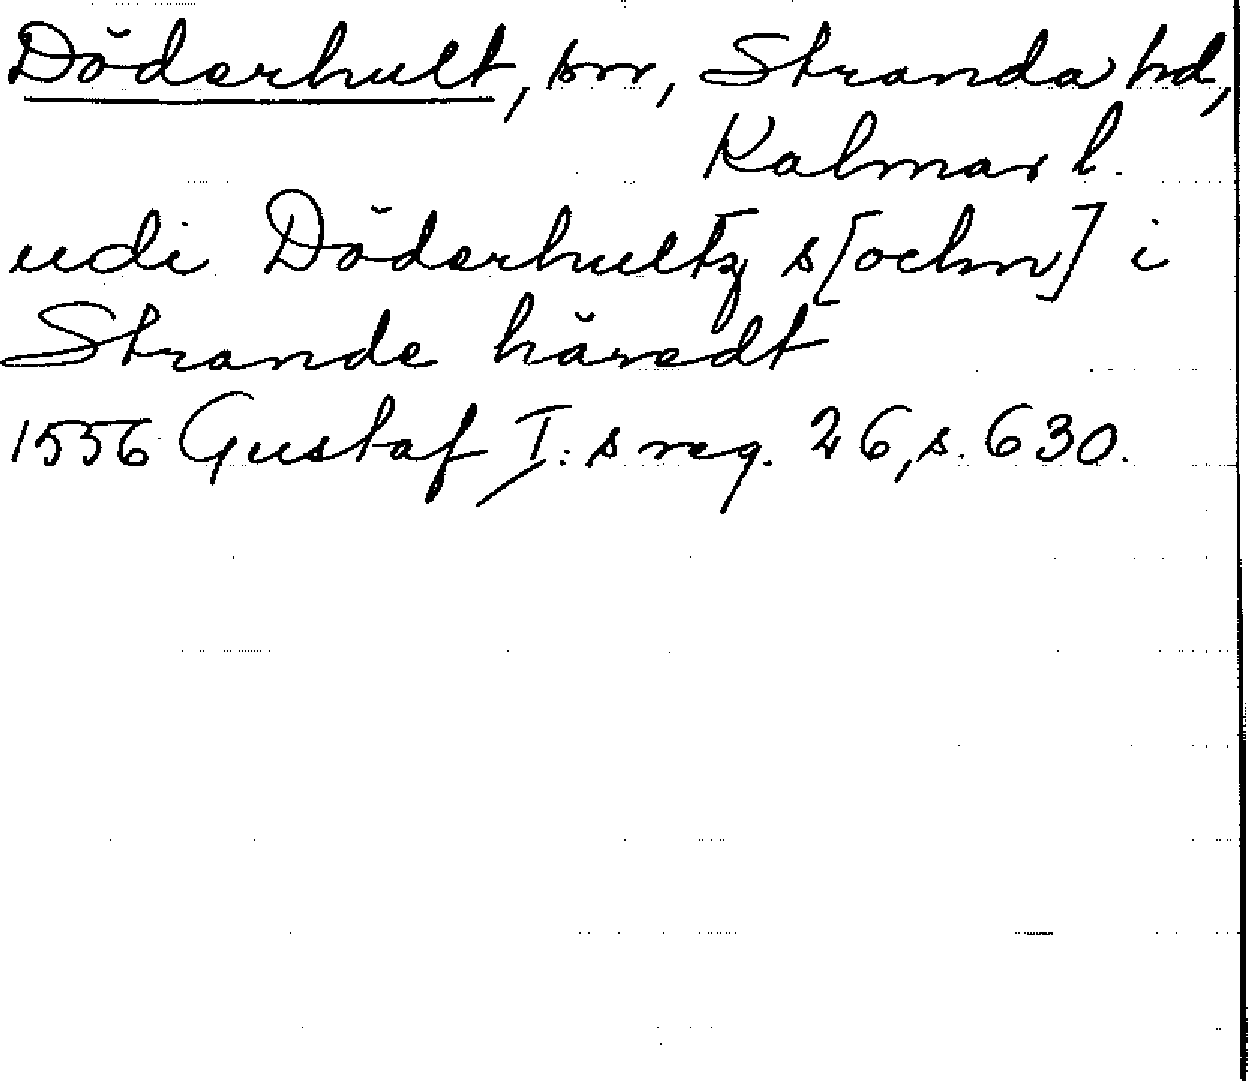 Döderhult, sn, Stranda hd,
Kalmar l.
udi Döderhultz s[ochn] i
Strande häredt
1556 Gustaf I:s reg. 26, s. 630.